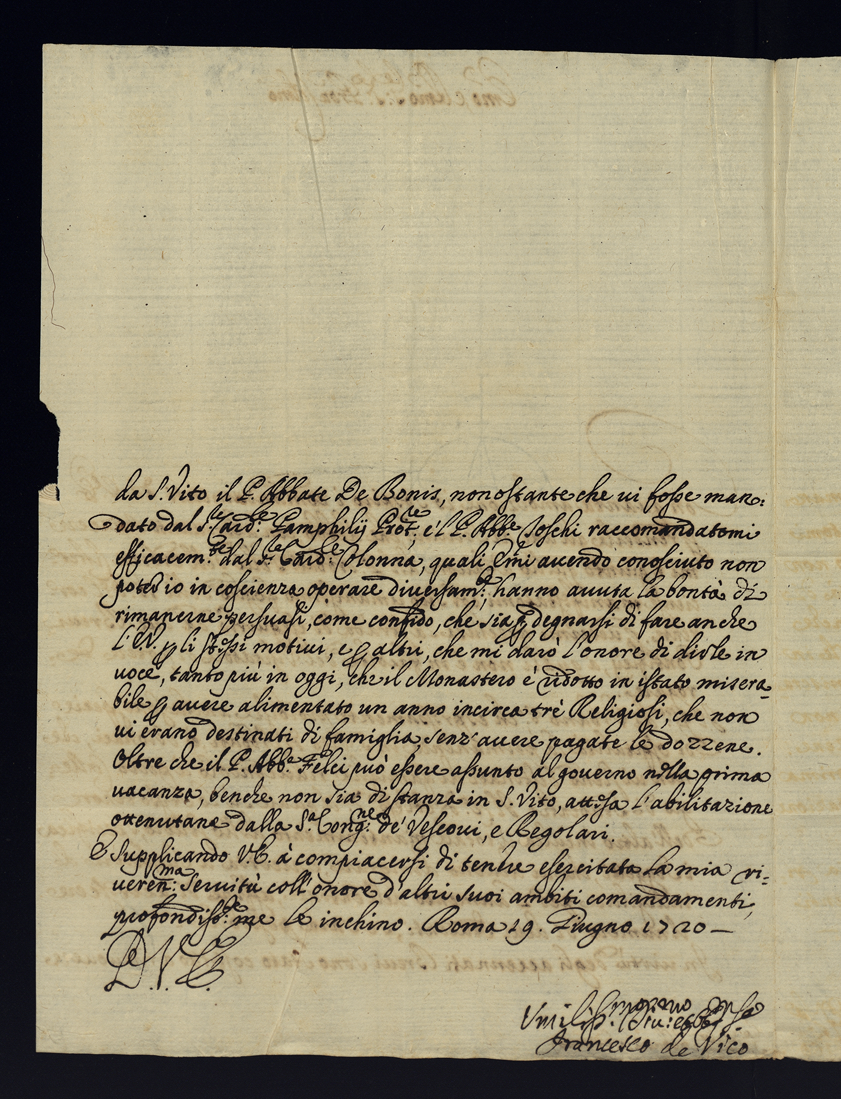 da S. Vito il P. Abbate De Bonis, nonostante che vi fosse man:
dato dal S.r Card.le Pamphilij Prot.re, e'l P. Abb.e Toschi raccomandatomi
efficacem.te dal S.r Card.le Colonna, quali Em̃i avendo conosciuto non
poter io in coscienza operare diversam.te, hanno avuta la bontà di
rimanerne persuasi, come confido, che sia p degnarsi di fare anche
l'E.V. p li stessi motivi, e p altri, che mi darò l'onore di dirle in
voce, tanto più in oggi, che il Monastero è ridotto in istato misera-
bile p avere alimentato un anno incirca trè Religiosi, che non
vi erano destinati di famiglia, senz'avere pagate le dozzene.
Oltre che il P. Abb.e Felci può essere assunto al governo nella prima
vacanza, benche non sia di stanza in S. Vito, attesa l'abilitazione
ottenutane dalla S.a Cong.ne de' Vescovi, e Regolari.
E supplicando V.E. à compiacersi di tenere esercitata la mia ri-
veren.ma servitù coll'onore d'altri suoi ambiti comandamenti,
profondiss.te me le inchino. Roma 19. Giugno 1720 –
D.V.E.
Umiliss.mo
Francesco de Vico